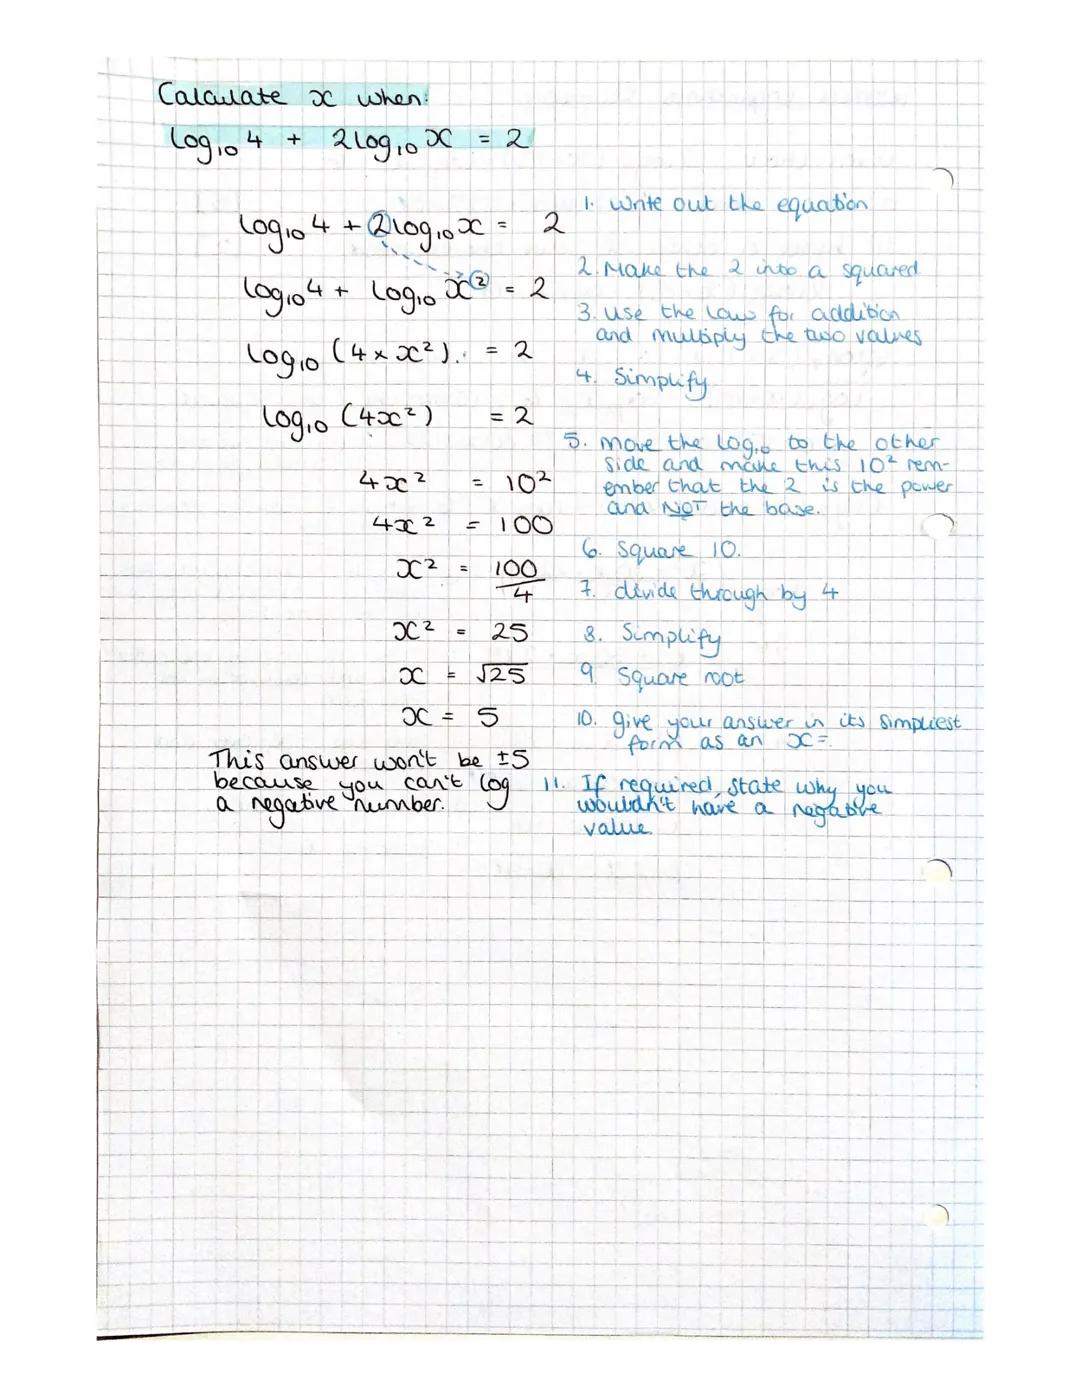 Calculate x when:
log₁₀ 4 + 2log₁₀ x = 2
log₁₀ 4 + 2log₁₀ x = 2
1. Write out the equation
log₁₀ 4 + log₁₀ x² = 2
2. Make the 2 into a squared
log₁₀ (4 × x²). = 2
3. use the law for addition
and multiply the two values
log₁₀ (4x²) = 2
4. Simplify
4x² = 10²
5. move the log₁₀ to the other
side and make this 10² rem-
ember that the 2 is the power
and NOT the base.
4x² = 100
6. Square 10.
x² = 100/4
7. divide through by 4
x² = 25
8. Simplify
x = √25
9. Square root
x = 5
10. give your answer in its simpliest
form as an x=.
This answer won't be ±5
because you can't log
a negative number.
11. If required, state why you
wouldn't have a negative
value.